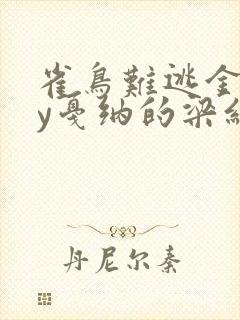 雀鳥難逃金
y戛纳的梁纟
丹尼尔秦